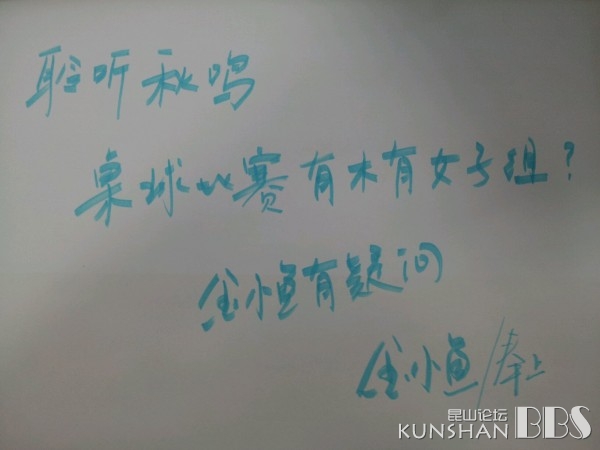 聆听秋鸣
桌球比赛有木有女子组？
金小鱼有疑问
金小鱼/奉上
昆山论坛
KUNSHAN BBS